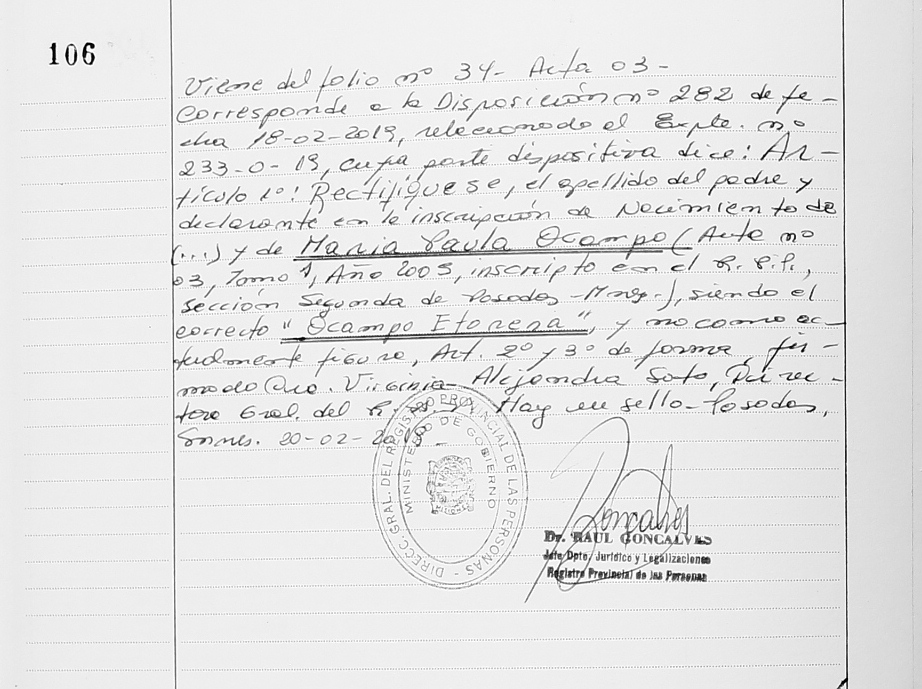 106
Viene del folio nº 34- Acta 03-
Corresponde a la Disposición nº 282 de fe-
cha 18-02-2019, relacionado el Expte. nº
233-0-19, cuya parte dispositiva dice: Ar-
tículo 1º: Rectifíquese, el apellido del padre y
declarante en la inscripción de Nacimiento de
(...) y de Maria Paula Ocampo (Acta nº
03, Tomo 1, Año 2005, inscripto en el R.P.P.,
sección Segunda de Posadas-Mnes-), siendo el
correcto "Ocampo Etorena", y no como ac-
tualmente figura, Art. 2º y 3º de forma, fir-
mado Dra. Virginia Alejandra Soto, Direc-
tora Gral. del R. P. Hay un sello-Posadas,
20-02-2019-
DIRECC. GRAL. DEL REGISTRO PROVINCIAL DE LAS PERSONAS -
MINISTERIO DE GOBIERNO
Dr. RAUL GONCALVES
Jefe Dpto. Jurídico y Legalizaciones
Registro Provincial de las Personas